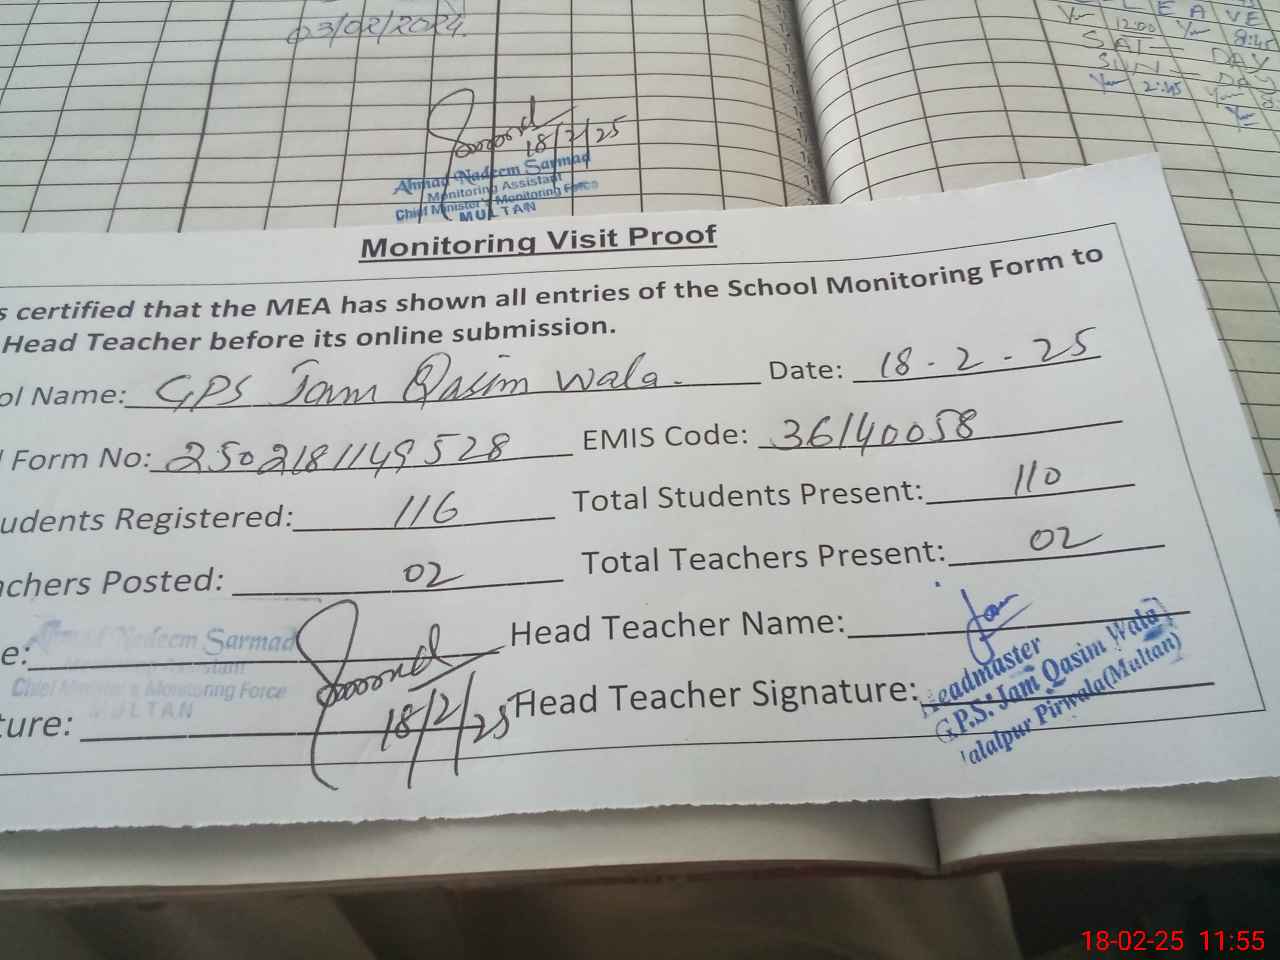 03/02/2024.
LEAVE
12:00 8:45
SAT — DAY
SUN — DAY
2:45
18/2/25
Ahmad Nadeem Sarmad
Monitoring Assistant
Chief Minister's Monitoring Force
MULTAN
Monitoring Visit Proof
s certified that the MEA has shown all entries of the School Monitoring Form to
Head Teacher before its online submission.
ol Name: GPS Jam Qasim Wala. Date: 18-2-25
Form No: 2502181149528 EMIS Code: 36140058
udents Registered: 116 Total Students Present: 110
achers Posted: 02 Total Teachers Present: 02
e: Ahmad Nadeem Sarmad Head Teacher Name:
Monitoring Assistant
Chief Minister's Monitoring Force
MULTAN
ture: 18/2/25 Head Teacher Signature:
Headmaster
G.P.S: Jam Qasim Wala
Jalalpur Pirwala(Multan)
18-02-25 11:55